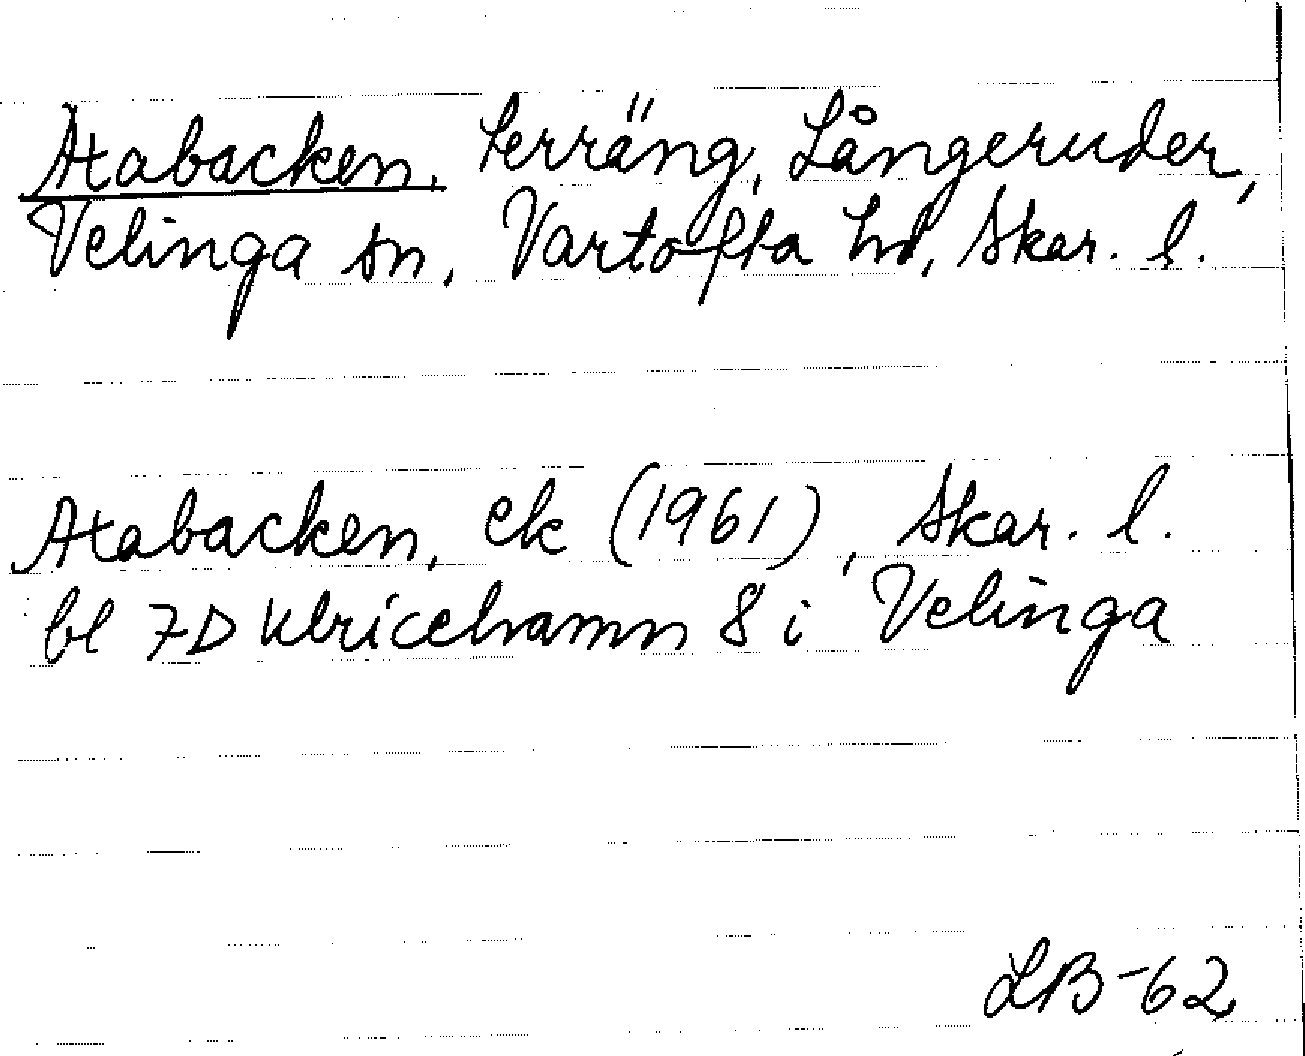 Atabacken. terräng, Långeruder,
Velinga sn, Vartofta hd, Skar. l.
Atabacken, ek (1961), Skar. l.
bl 7D Ulricehamn 8 i Velinga
LB-62